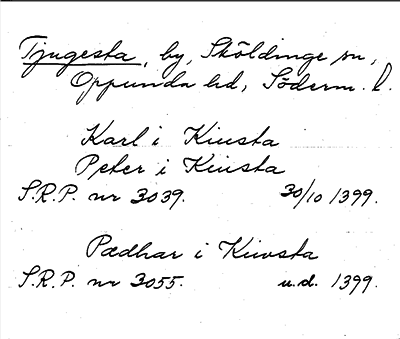 Tjugesta, by, Sköldinge sn,
Oppunda hd, Söderm. l.
Karl i Kiusta
Peter i Kiusta
S.R.P. nr 3039. 30/10 1399.
Pædhar i Kiwsta
S.R.P. nr 3055. u.d. 1399.